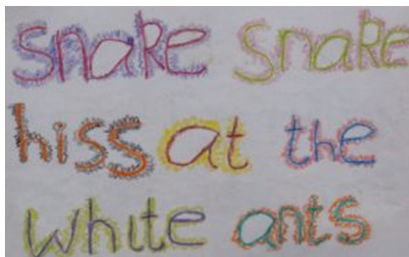 snake snake
hiss at the
white ants